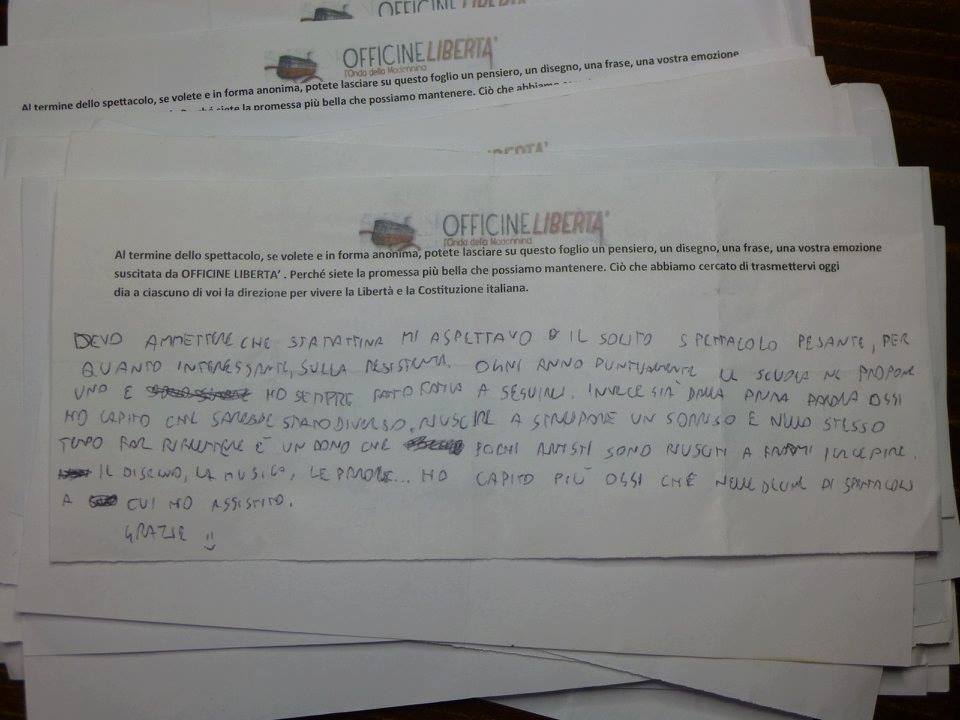 OFFICINE LIBERTÀ
OFFICINELIBERTA'
l'Onda della Madonnina
Al termine dello spettacolo, se volete e in forma anonima, potete lasciare su questo foglio un pensiero, un disegno, una frase, una vostra emozione
siete la promessa più bella che possiamo mantenere. Ciò che abbiamo
OFFICINELIBERTA'
l'Onda della Madonnina
Al termine dello spettacolo, se volete e in forma anonima, potete lasciare su questo foglio un pensiero, un disegno, una frase, una vostra emozione
suscitata da OFFICINE LIBERTA' . Perché siete la promessa più bella che possiamo mantenere. Ciò che abbiamo cercato di trasmettervi oggi
dia a ciascuno di voi la direzione per vivere la Libertà e la Costituzione italiana.
DEVO AMMETTERE CHE STAMATTINA MI ASPETTAVO IL SOLITO SPETTACOLO PESANTE, PER
QUANTO INTERESSANTE, SULLA RESISTENZA. OGNI ANNO PUNTUALMENTE LA SCUOLA NE PROPONE
UNO E HO SEMPRE FATTO FATICA A SEGUIRLI. INVECE GIÀ DALLA PRIMA PAROLA OGGI
HO CAPITO CHE SAREBBE STATO DIVERSO. RIUSCIRE A STRAPPARE UN SORRISO E NELLO STESSO
TEMPO FAR RIFLETTERE È UN DONO CHE POCHI ARTISTI SONO RIUSCITI A FARMI PERCEPIRE.
IL DISEGNO, LA MUSICA, LE PAROLE... HO CAPITO PIÙ OGGI CHE NELLE DECINE DI SPETTACOLI
A CUI HO ASSISTITO.
GRAZIE :)